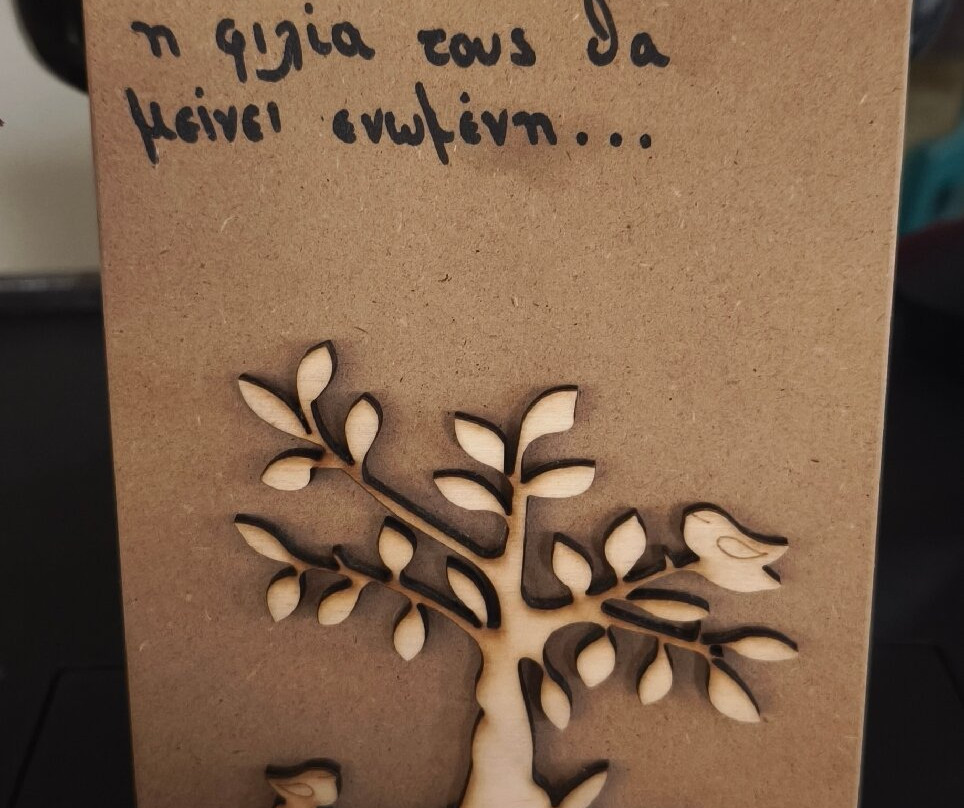 η φιλία τους θα
μείνει ενωμένη...